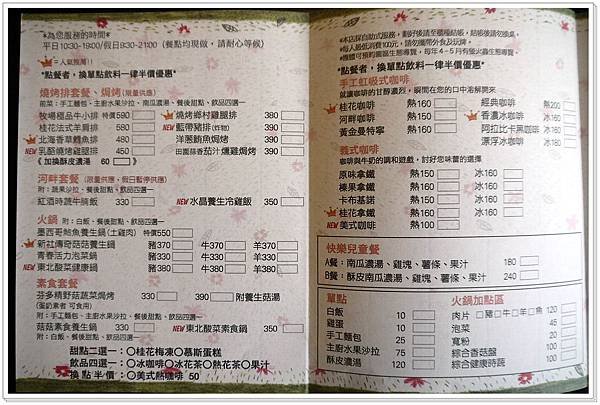 *為您服務的時間*
平日10:30-19:00/假日9:30-21:00 (餐點均現做,請耐心等候)
=人氣推薦!
*點餐者,換單點飲料一律半價優惠*
燒烤排套餐、焗烤(限量供應)
前菜:手工麵包、主廚水果沙拉、南瓜濃湯、餐後甜點、飲品四選一
牧場極品牛小排 特價590
桂花法式羊肩排 580
北海香草鱈魚排 450
NEW 乳酪燒烤雞腿排 450
《加換酥皮濃湯 60 》
燒烤鄉村雞腿排 390
NEW 藍帶豬排(炸物) 390
洋蔥鮪魚焗烤 380
田園蒜香茄汁燻雞焗烤 380
河畔套餐 (限量供應,假日暫停供應)
附:蔬果沙拉、餐後甜點、飲品四選一
紅酒時蔬牛腩飯 330
NEW 水晶養生冷雞飯 350
火鍋 附:白飯、餐後甜點、飲品四選一
墨西哥鮑魚養生鍋(土雞肉) 特價550
新社傳奇菇菇養生鍋 豬370 牛370 羊370
青春活力泡菜鍋 豬330 牛330 羊330
NEW 東北酸菜健康鍋 豬380 牛380 羊380
素食套餐
芬多精野菇蔬菜焗烤 330 390 附養生菇湯
(蛋奶素者 可食用)
附:手工麵包、主廚水果沙拉、餐後甜點、飲品四選一
菇菇素食養生鍋 330
NEW 東北酸菜素食鍋 350
附:白飯、餐後甜點、飲品四選一
甜點二選一:○桂花梅凍○慕斯蛋糕
飲品四選一:○冰咖啡○冰花茶○熱花茶○果汁
換點半價:○美式熱咖啡 50
*本店採自助式服務,劃好後請至櫃檯結帳,結帳後請勿換桌。
*每人最低消費100元,請勿攜帶外食及玩牌。
*
*點餐者,換單點飲料一律半價優惠*
手工虹吸式咖啡
就讓咖啡的甘醇濃烈,瞬間在您的口中溶解開來
桂花咖啡 熱160
河畔咖啡 熱150
黃金曼特寧 熱160
經典咖啡 熱200
香濃冰咖啡 冰160
阿拉比卡黑咖啡 冰160
漂浮冰咖啡 冰180
義式咖啡
咖啡與牛奶的調和遊戲,討好您味蕾的選擇
原味拿鐵 熱150 冰160
榛果拿鐵 熱160 冰160
卡布基諾 熱150 冰160
桂花拿鐵 熱160 冰160
NEW 美式咖啡 熱100
快樂兒童餐
A餐:南瓜濃湯、雞塊、薯條、果汁 180
B餐:酥皮南瓜濃湯、雞塊、薯條、果汁 240
單點
白飯 10
雞蛋 10
手工麵包 25
主廚水果沙拉 75
酥皮濃湯 120
火鍋加點區
肉片 □豬□牛□羊□魚 120
泡菜 45
寬粉 20
綜合香菇盤 100
綜合健康時蔬 100